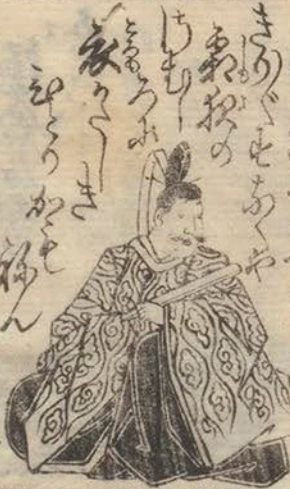 きり〴〵すなくや
霜夜の
さむし
ろに
衣かたしき
ひとりかも
ねん